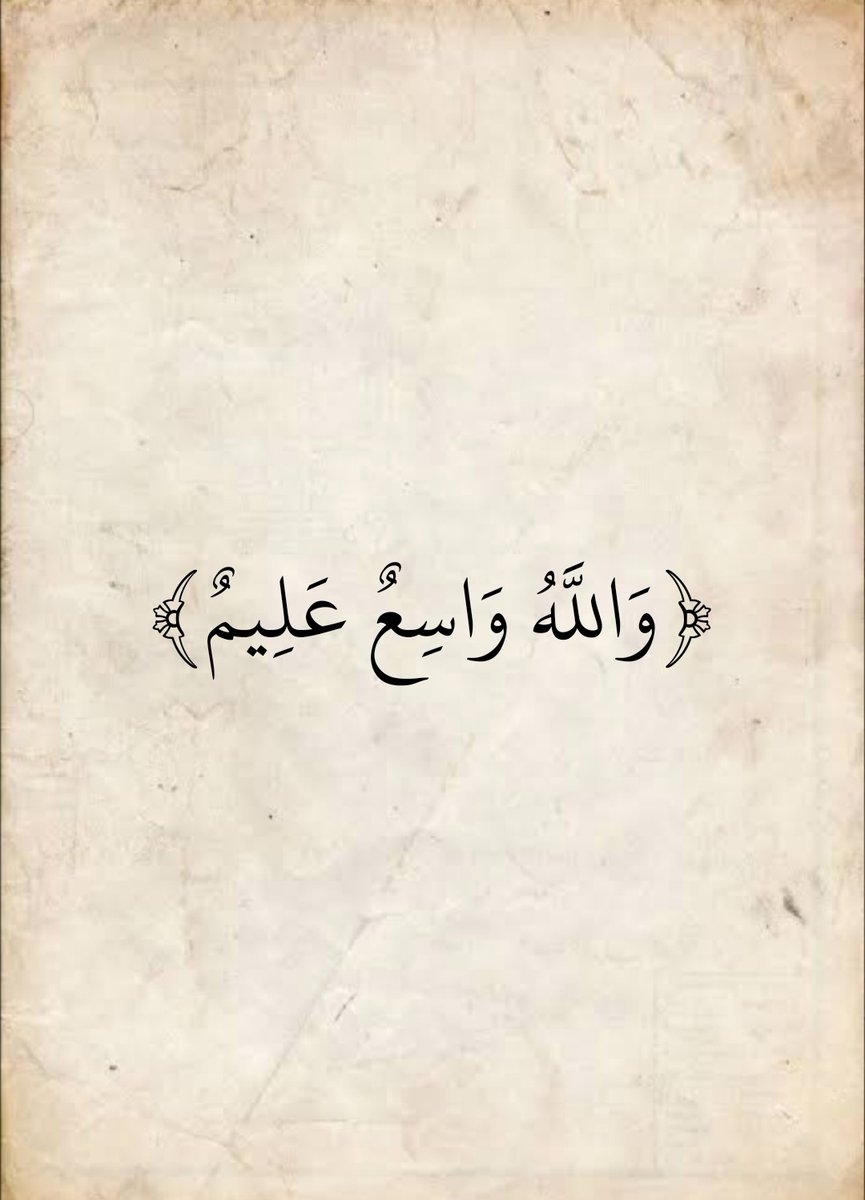 ﴿وَاللَّهُ وَاسِعٌ عَلِيمٌ﴾